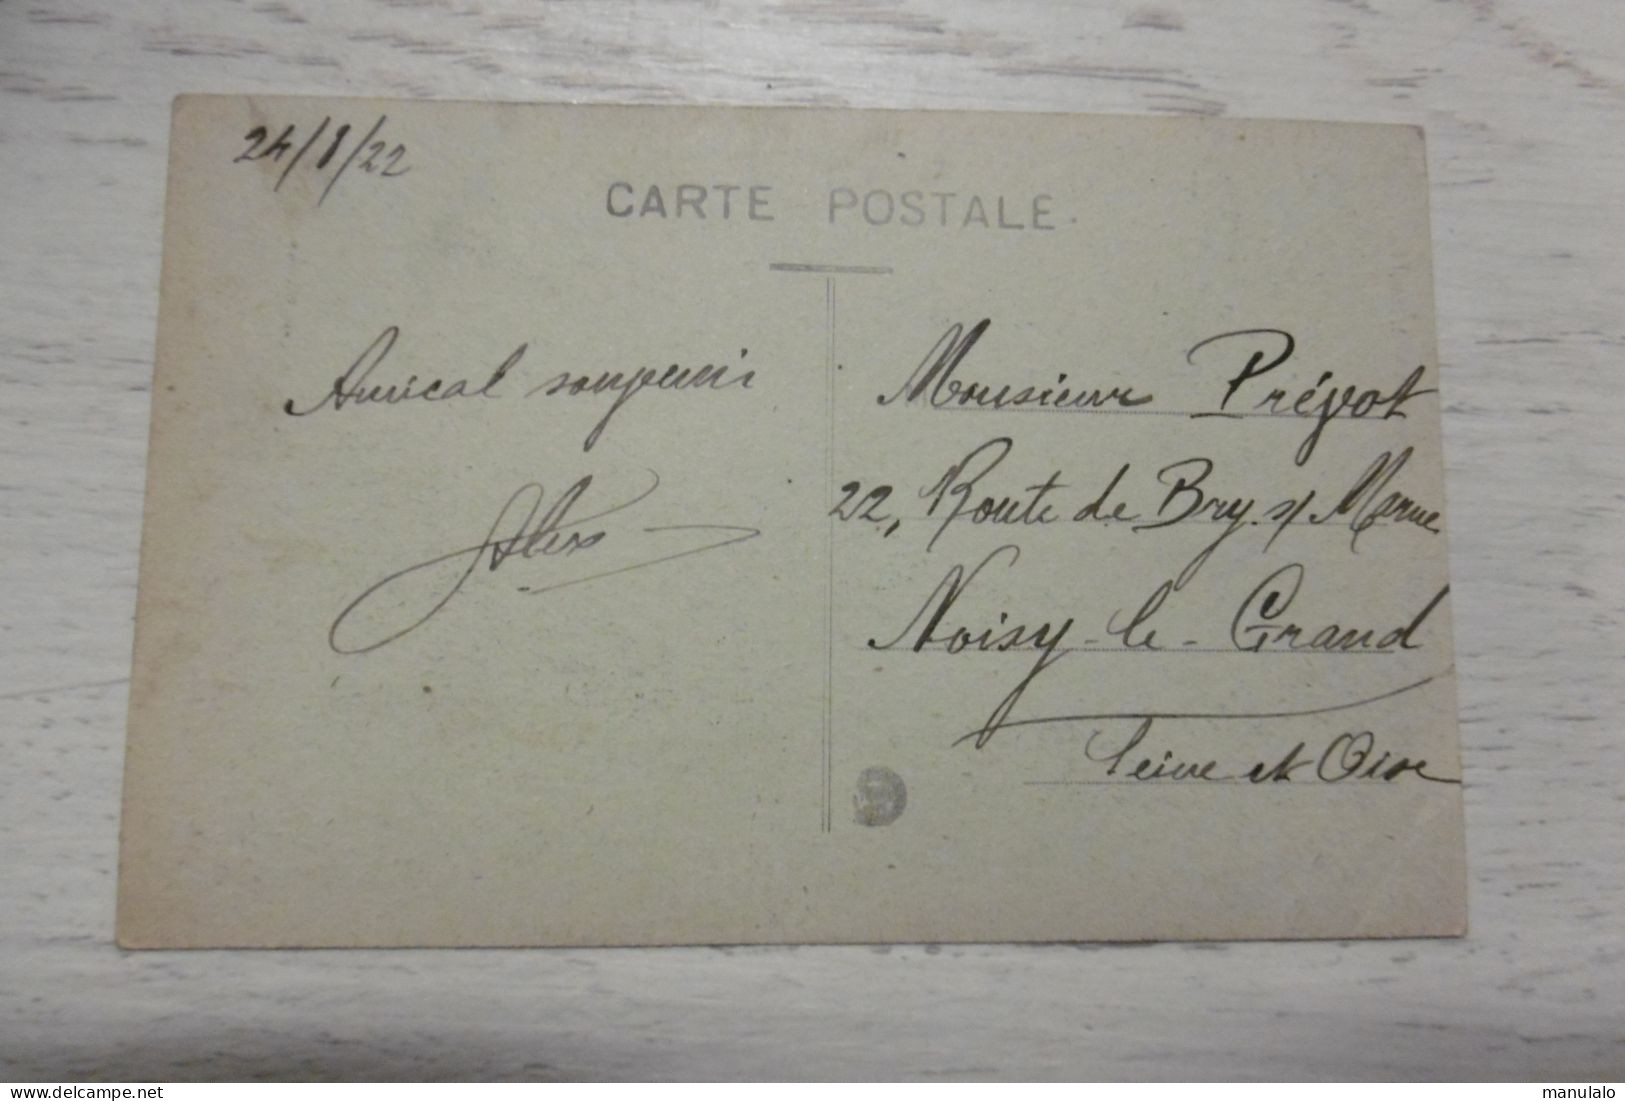 24/8/22
CARTE POSTALE
Amical souvenir
Alex
Monsieur Prévot
22, Route de Bry s/ Marne
Noisy-le-Grand
Seine et Oise
www.delcampe.net
manulalo